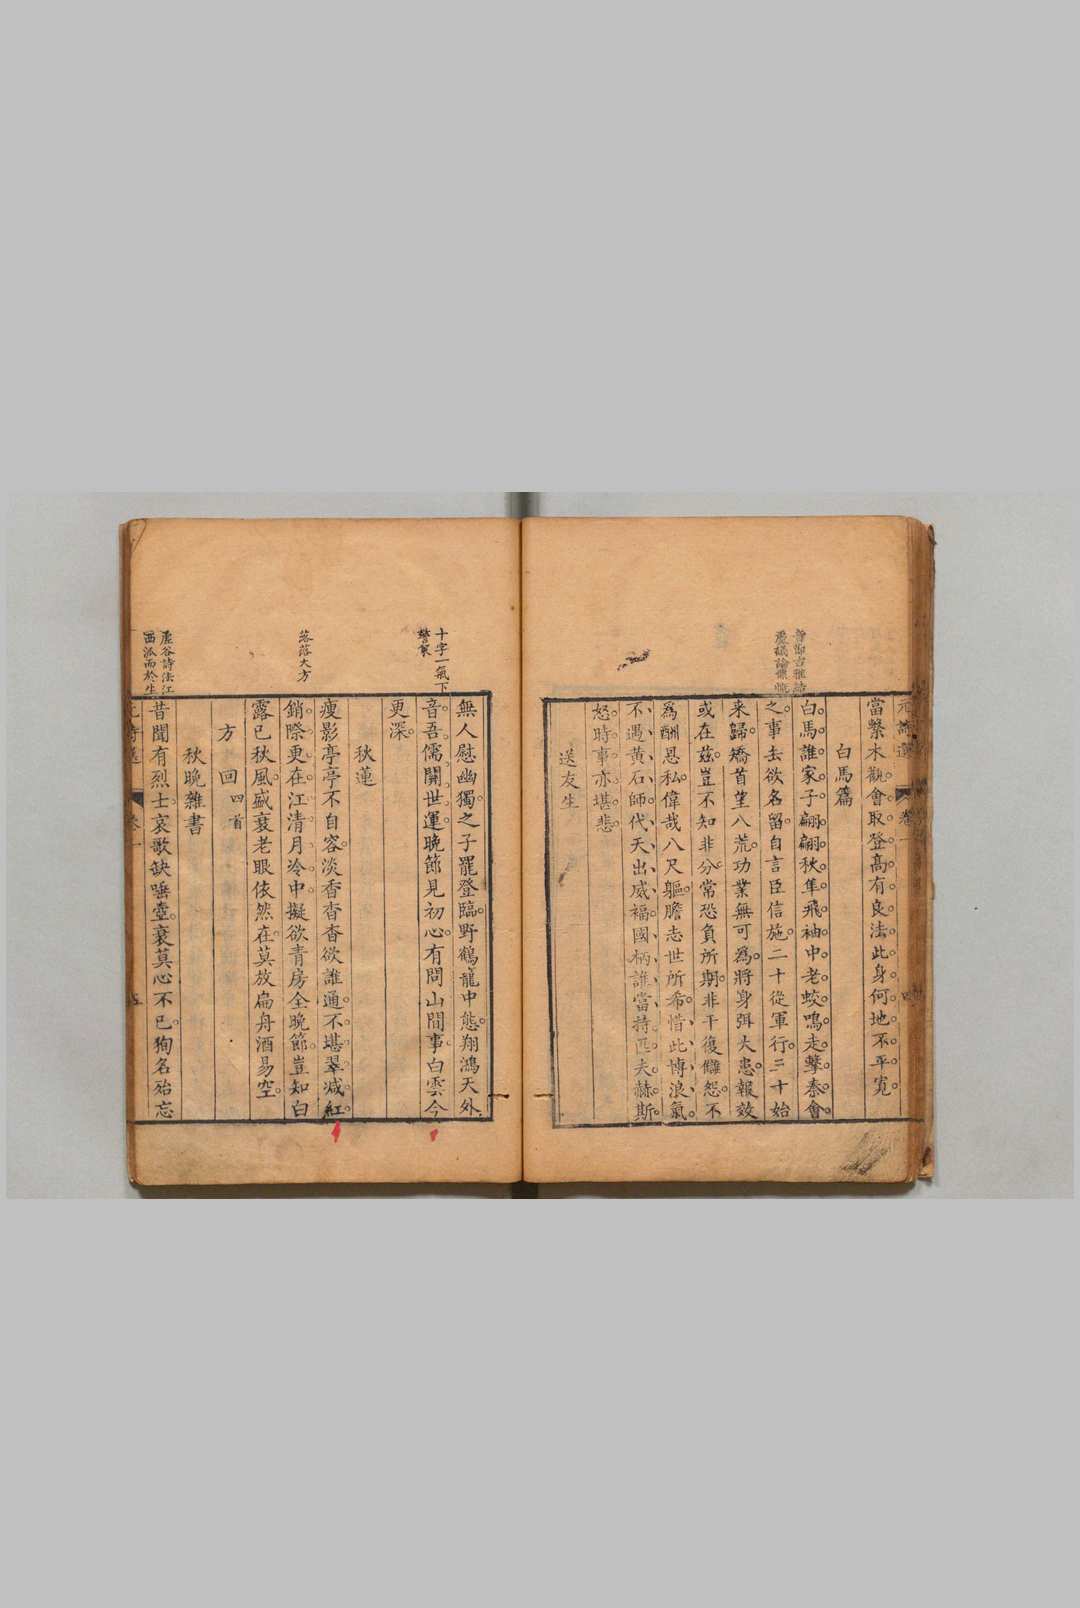 元詩選 卷一
當繫木觀會取登高有良法此身何地不平寬
白馬篇
白馬誰家子翩翩秋隼飛袖中老蛟鳴走擊秦會
之事去欲名留自言臣信施二十從軍行三十始
来歸矯首望八荒功業無可為將身弭大患報效
或在茲豈不知非分常恐負所期非干復讎怨不
為酬恩私偉哉八尺軀膽志世所希惜此博浪氣
不遇黄石師代天出威福國柄誰當持匹夫赫斯
怒時事亦堪悲
送友生
十字一氣下
無人慰幽獨之子罷登臨野鶴籠中態翔鴻天外
音吾儒關世運晚節見初心有問山間事白雲今
更深
秋蓮
瘦影亭亭不自容淡香杳杳欲誰通不堪翠減紅
落落大方
銷際更在江清月冷中擬欲青房全晚節豈知白
露已秋風盛衰老眼依然在莫放扁舟酒易空
方回 四首
秋晚雜書
虛谷詩法江
西派而於生
昔聞有烈士哀歌缺唾壺衰莫心不已狥名殆忘
元詩選 卷一 五